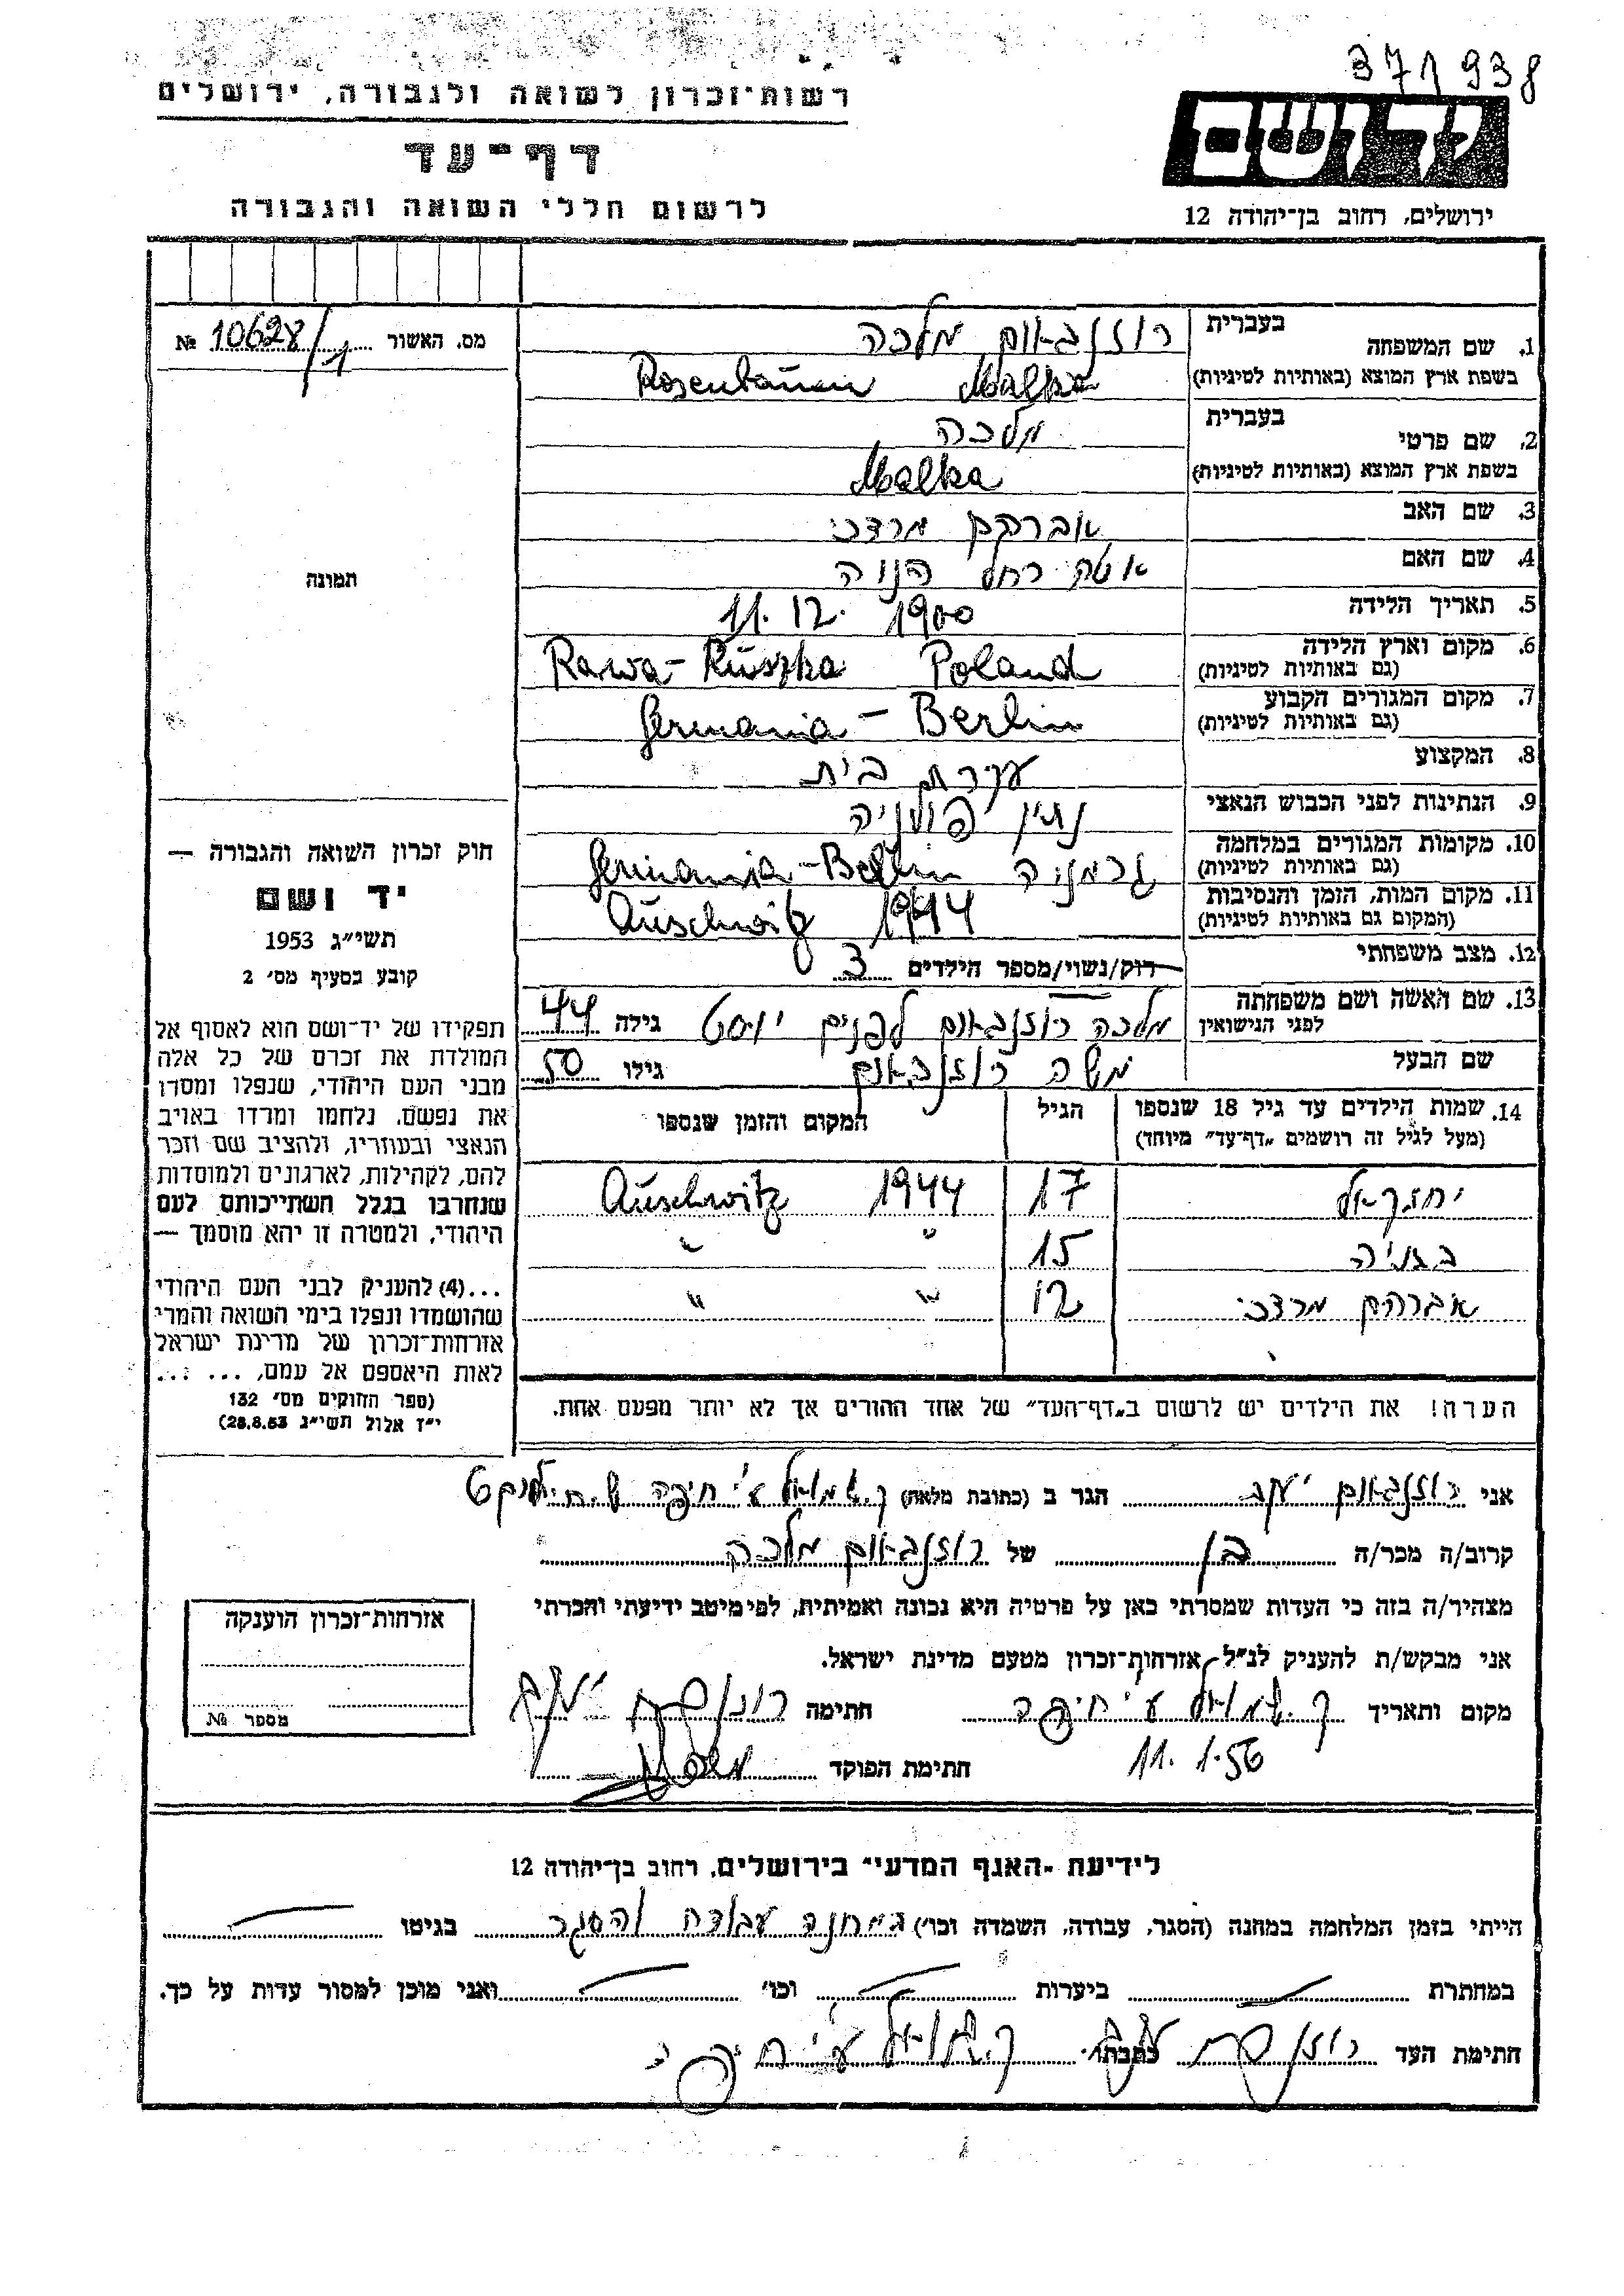 371938
רשות־זכרון לשואה ולגבורה, ירושלים
דף־עד
לרשום חללי השואה והגבורה
יד ושם
ירושלים, רחוב בן־יהודה 12
מס. האשור 10628/1 №
תמונה
חוק זכרון השואה והגבורה —
יד ושם
תשי״ג 1953
קובע בסעיף מס׳ 2
תפקידו של יד־ושם הוא לאסוף אל
המולדת את זכרם של כל אלה
מבני העם היהודי, שנפלו ומסרו
את נפשם, נלחמו ומרדו באויב
הנאצי ובעוזריו, ולהציב שם וזכר
להם, לקהילות, לארגונים ולמוסדות
שנחרבו בגלל השתייכותם לעם
היהודי, ולמטרה זו יהא מוסמך —
...(4) להעניק לבני העם היהודי
שהושמדו ונפלו בימי השואה והמרי
אזרחות־זכרון של מדינת ישראל
לאות היאספם אל עמם, ... ...
(ספר החוקים מס׳ 132
י״ז אלול תשי״ג 28.8.53)
1. שם המשפחה בעברית רוזנבאום מלכה
בשפת ארץ המוצא (באותיות לטיניות) Rosenbaum Malka
2. שם פרטי בעברית מלכה
בשפת ארץ המוצא (באותיות לטיניות) Malka
3. שם האב אברהם מרדכי
4. שם האם רחל
5. תאריך הלידה 11. 12. 1900
6. מקום וארץ הלידה (גם באותיות לטיניות) Rawa-Ruszka Poland
7. מקום המגורים הקבוע (גם באותיות לטיניות) Germania - Berlin
8. המקצוע עקרת בית
9. הנתינות לפני הכבוש הנאצי נתין פולניה
10. מקומות המגורים במלחמה (גם באותיות לטיניות) גרמניה Germania - Berlin
11. מקום המות, הזמן והנסיבות (המקום גם באותיות לטיניות) Auschwitz 1944
12. מצב משפחתי רוק/נשוי/מספר הילדים 3
13. שם האשה ושם משפחתה לפני הנישואין מלכה רוזנבאום לפנים גילה 44
שם הבעל משה רוזנבאום גילו 50
14. שמות הילדים עד גיל 18 שנספו הגיל המקום והזמן שנספו
(מעל לגיל זה רושמים „דף־עד״ מיוחד)
יחזקאל 17 1944 Auschwitz
15 " "
אברהם מרדכי 12 " "
הערה! את הילדים יש לרשום ב„דף־העד״ של אחד ההורים אך לא יותר מפעם אחת.
אני רוזנבאום יעקב הגר ב (כתובת מלאה) ק. שמואל ע״י חיפה
קרוב/ה מכר/ה בן של רוזנבאום מלכה
מצהיר/ה בזה כי העדות שמסרתי כאן על פרטיה היא נכונה ואמיתית, לפי מיטב ידיעתי והכרתי
אני מבקש/ת להעניק לנ״ל אזרחות־זכרון מטעם מדינת ישראל.
מקום ותאריך ק. שמואל ע״י חיפה חתימה רוזנבאום יעקב
11. 1. 56 חתימת הפוקד
אזרחות־זכרון הוענקה
מספר №
לידיעת „האגף המדעי״ בירושלים, רחוב בן־יהודה 12
הייתי בזמן המלחמה במחנה (הסגר, עבודה, השמדה וכו׳) במחנה עבודה והסגר בגיטו —
במחתרת — ביערות — וכו׳ — ואני מוכן למסור עדות על כך.
חתימת העד רוזנבאום יעקב כתבתו ק. שמואל ע״י חיפה